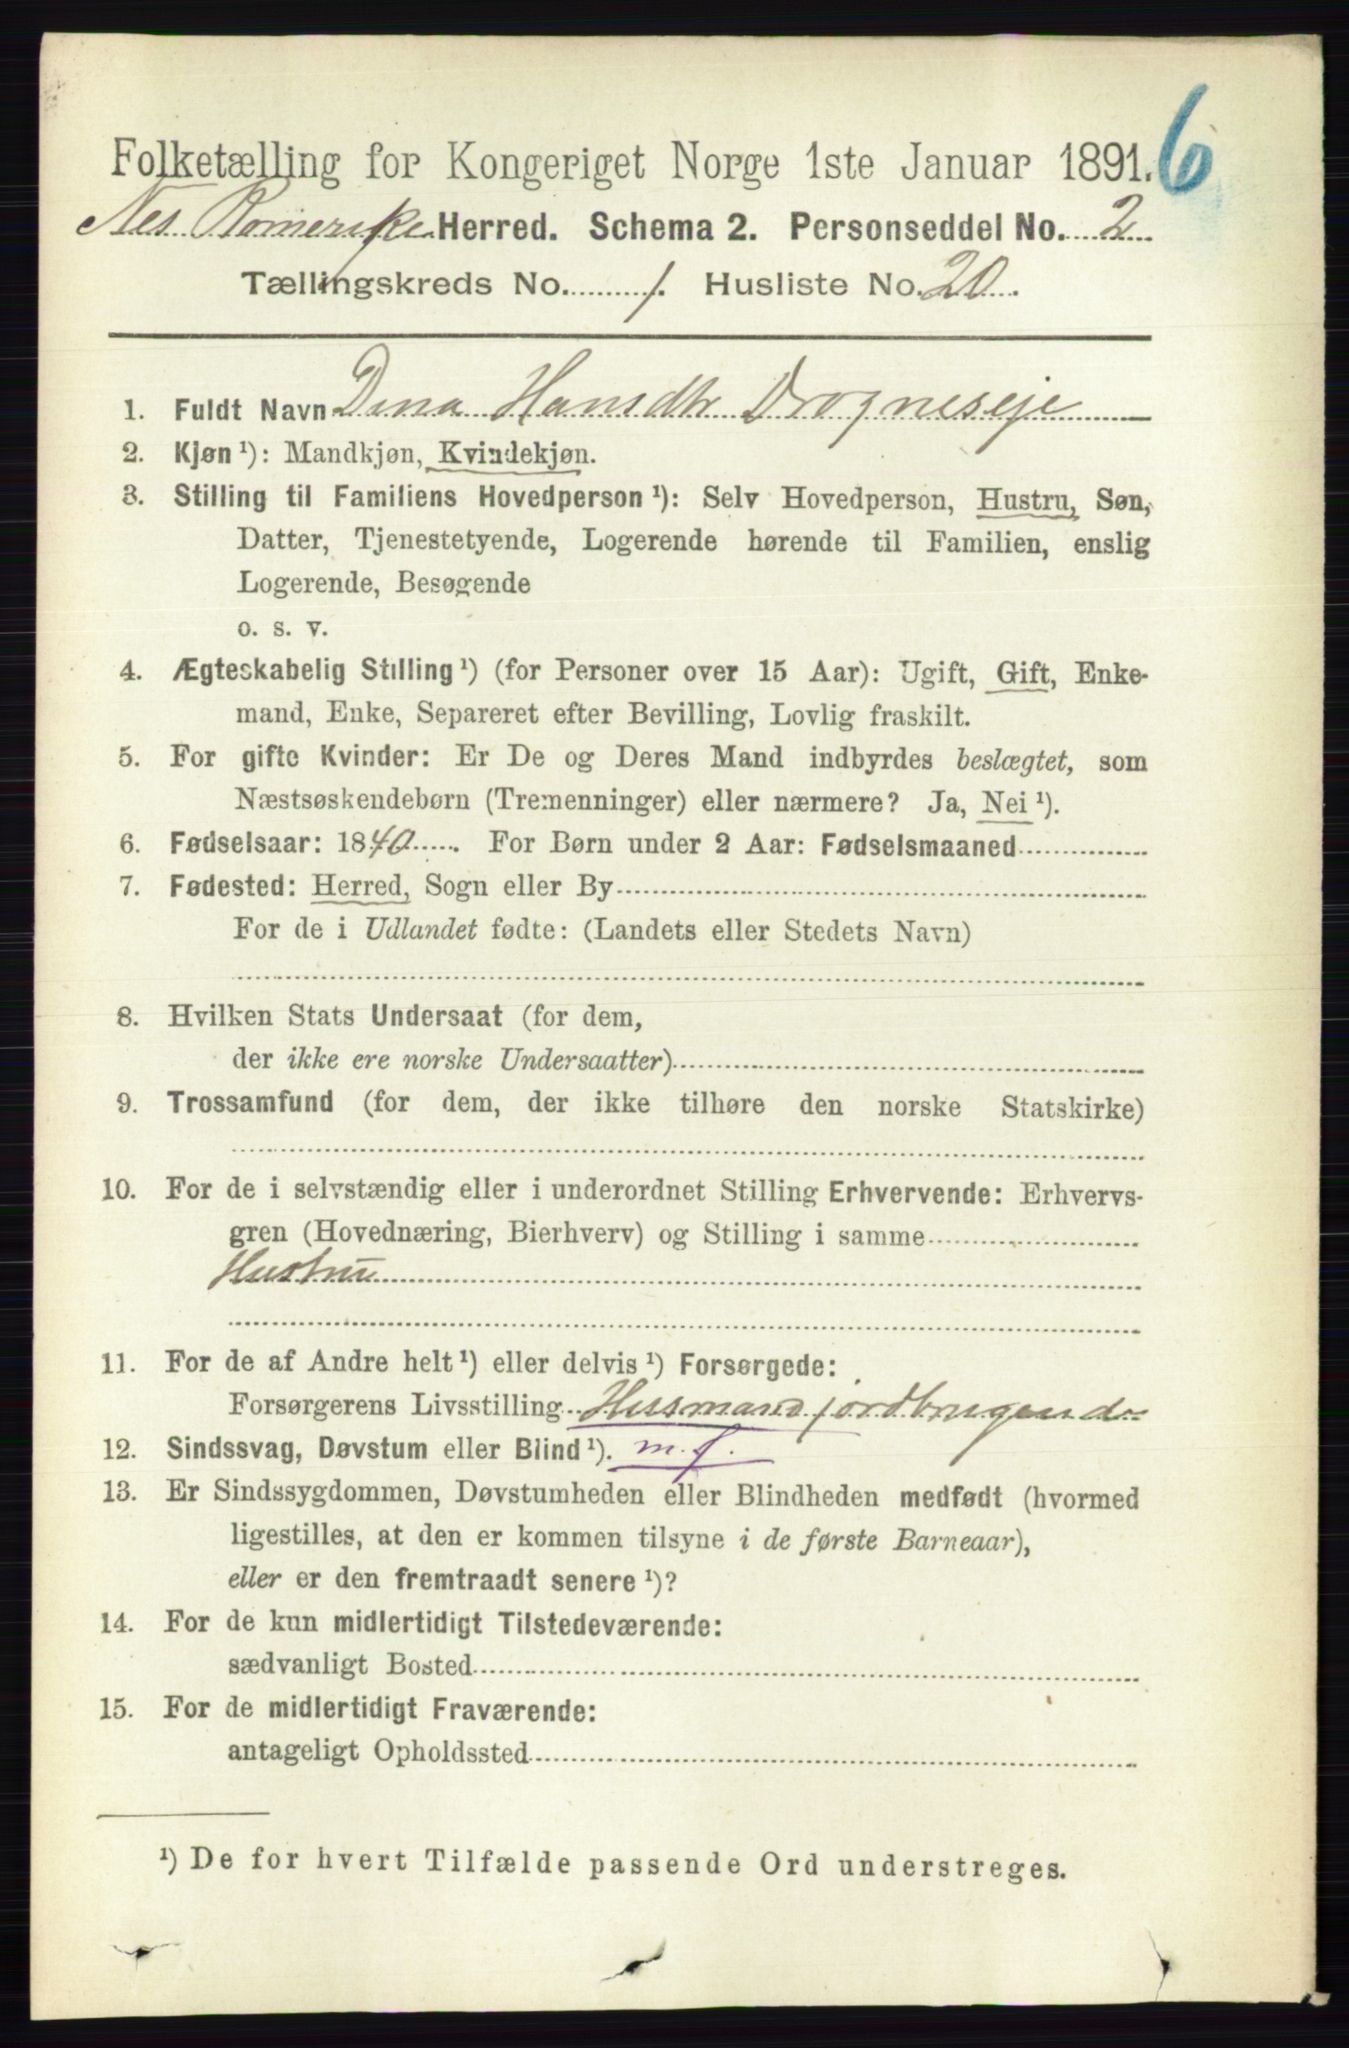 6
Folketælling for Kongeriget Norge 1ste Januar 1891.
Nes Romerike Herred. Schema 2. Personseddel No. 2
Tællingskreds No. 1. Husliste No. 20.
1. Fuldt Navn Dina Hansdtr Drogneseje
2. Kjøn ¹): Mandkjøn, Kvindekjøn.
3. Stilling til Familiens Hovedperson ¹): Selv Hovedperson, Hustru, Søn,
Datter, Tjenestetyende, Logerende hørende til Familien, enslig
Logerende, Besøgende
o. s. v.
4. Ægteskabelig Stilling ¹) (for Personer over 15 Aar): Ugift, Gift, Enke-
mand, Enke, Separeret efter Bevilling, Lovlig fraskilt.
5. For gifte Kvinder: Er De og Deres Mand indbyrdes beslægtet, som
Næstsøskendebørn (Tremenninger) eller nærmere? Ja, Nei ¹).
6. Fødselsaar: 1840. For Børn under 2 Aar: Fødselsmaaned
7. Fødested: Herred, Sogn eller By
For de i Udlandet fødte: (Landets eller Stedets Navn)
8. Hvilken Stats Undersaat (for dem,
der ikke ere norske Undersaatter)
9. Trossamfund (for dem, der ikke tilhøre den norske Statskirke)
10. For de i selvstændig eller i underordnet Stilling Erhvervende: Erhvervs-
gren (Hovednæring, Bierhverv) og Stilling i samme
Hustru
11. For de af Andre helt ¹) eller delvis ¹) Forsørgede:
Forsørgerens Livsstilling Husmand jordbrugende
12. Sindssvag, Døvstum eller Blind ¹). m. f.
13. Er Sindssygdommen, Døvstumheden eller Blindheden medfødt (hvormed
ligestilles, at den er kommen tilsyne i de første Barneaar),
eller er den fremtraadt senere ¹)?
14. For de kun midlertidigt Tilstedeværende:
sædvanligt Bosted
15. For de midlertidigt Fraværende:
antageligt Opholdssted
¹) De for hvert Tilfælde passende Ord understreges.